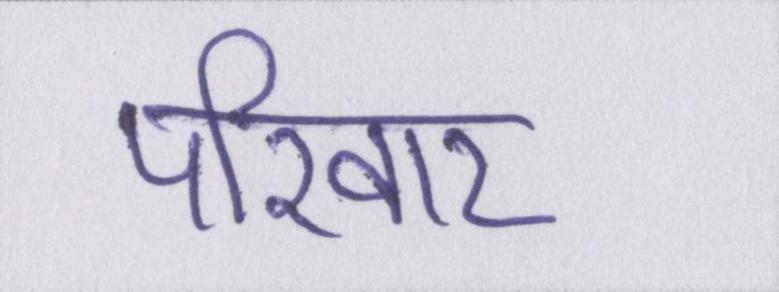 परिवार